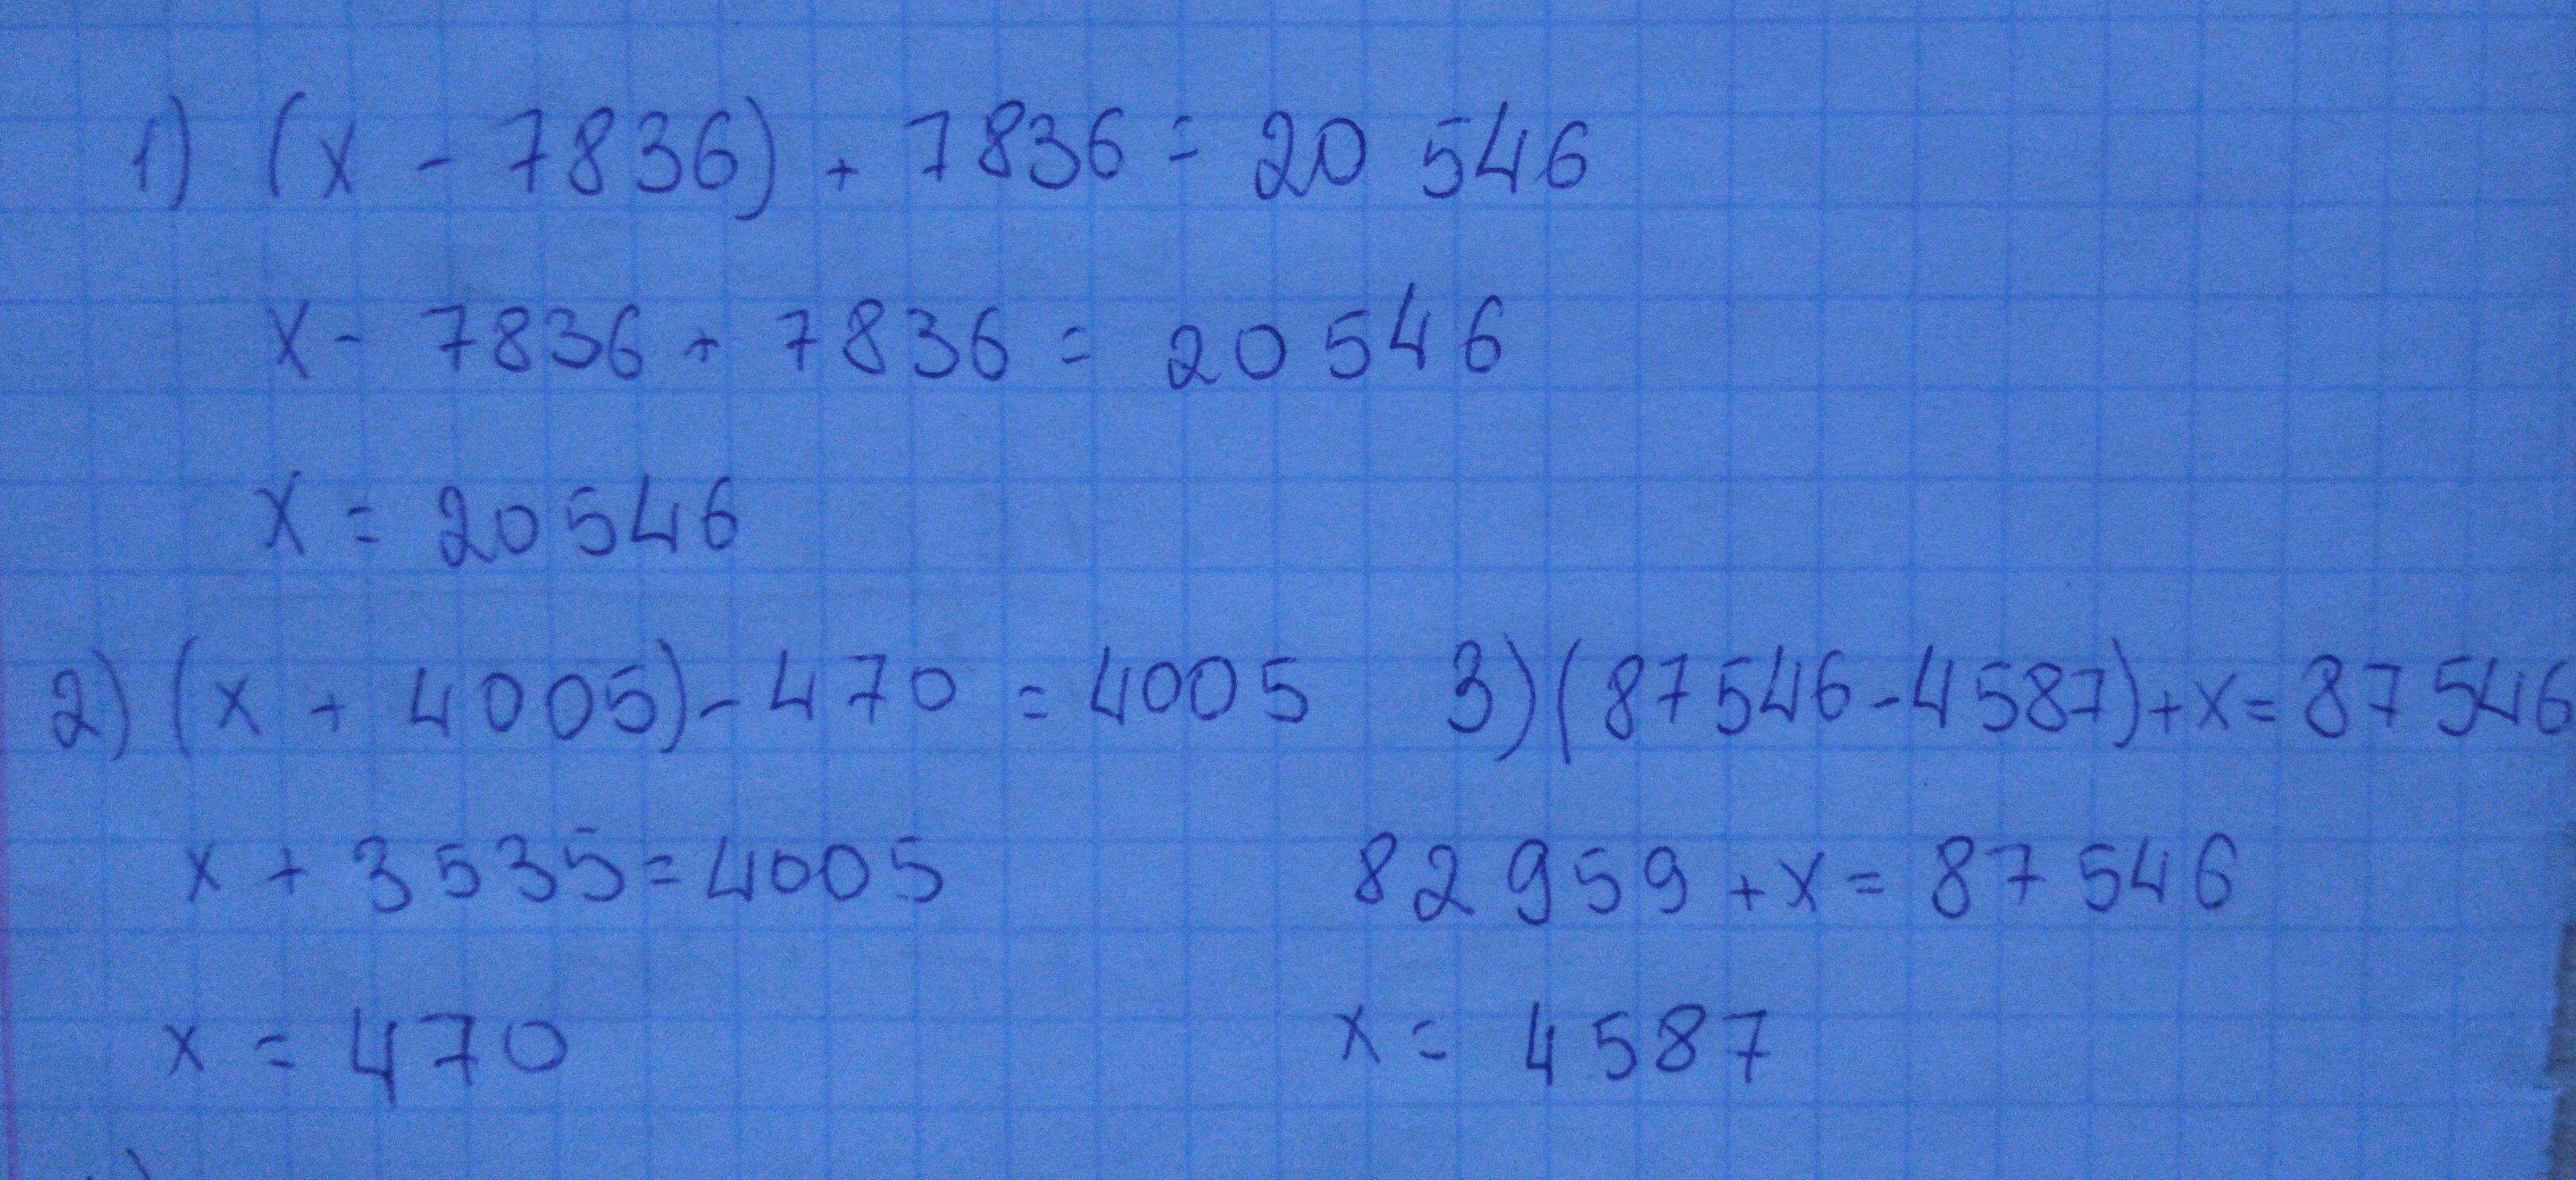 1) (x - 7836) + 7836 = 20 546
x - 7836 + 7836 = 20546
x = 20546
2) (x + 4005) - 470 = 4005
x + 3535 = 4005
x = 470
3) (87546 - 4587) + x = 87546
82959 + x = 87546
x = 4587